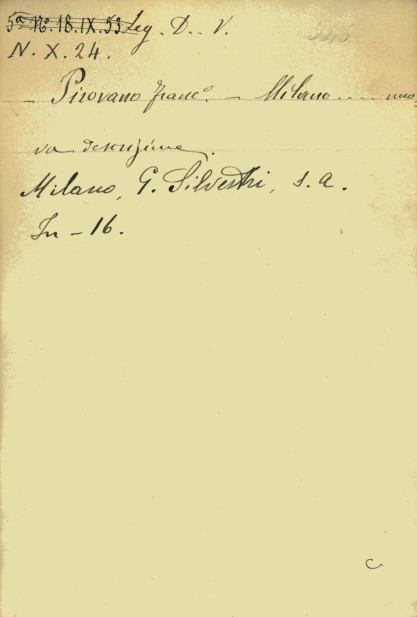 5ª Nº. 18.IX.53 Leg. D. V.
N. X. 24.
Pirovano Franc.º - Milano ... nuo,
va descrizione.
Milano, G. Silvestri, s. a.
In - 16.
C